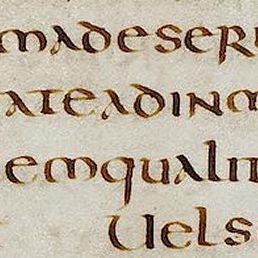 madeseru
ateadinm
emqualit
Uels